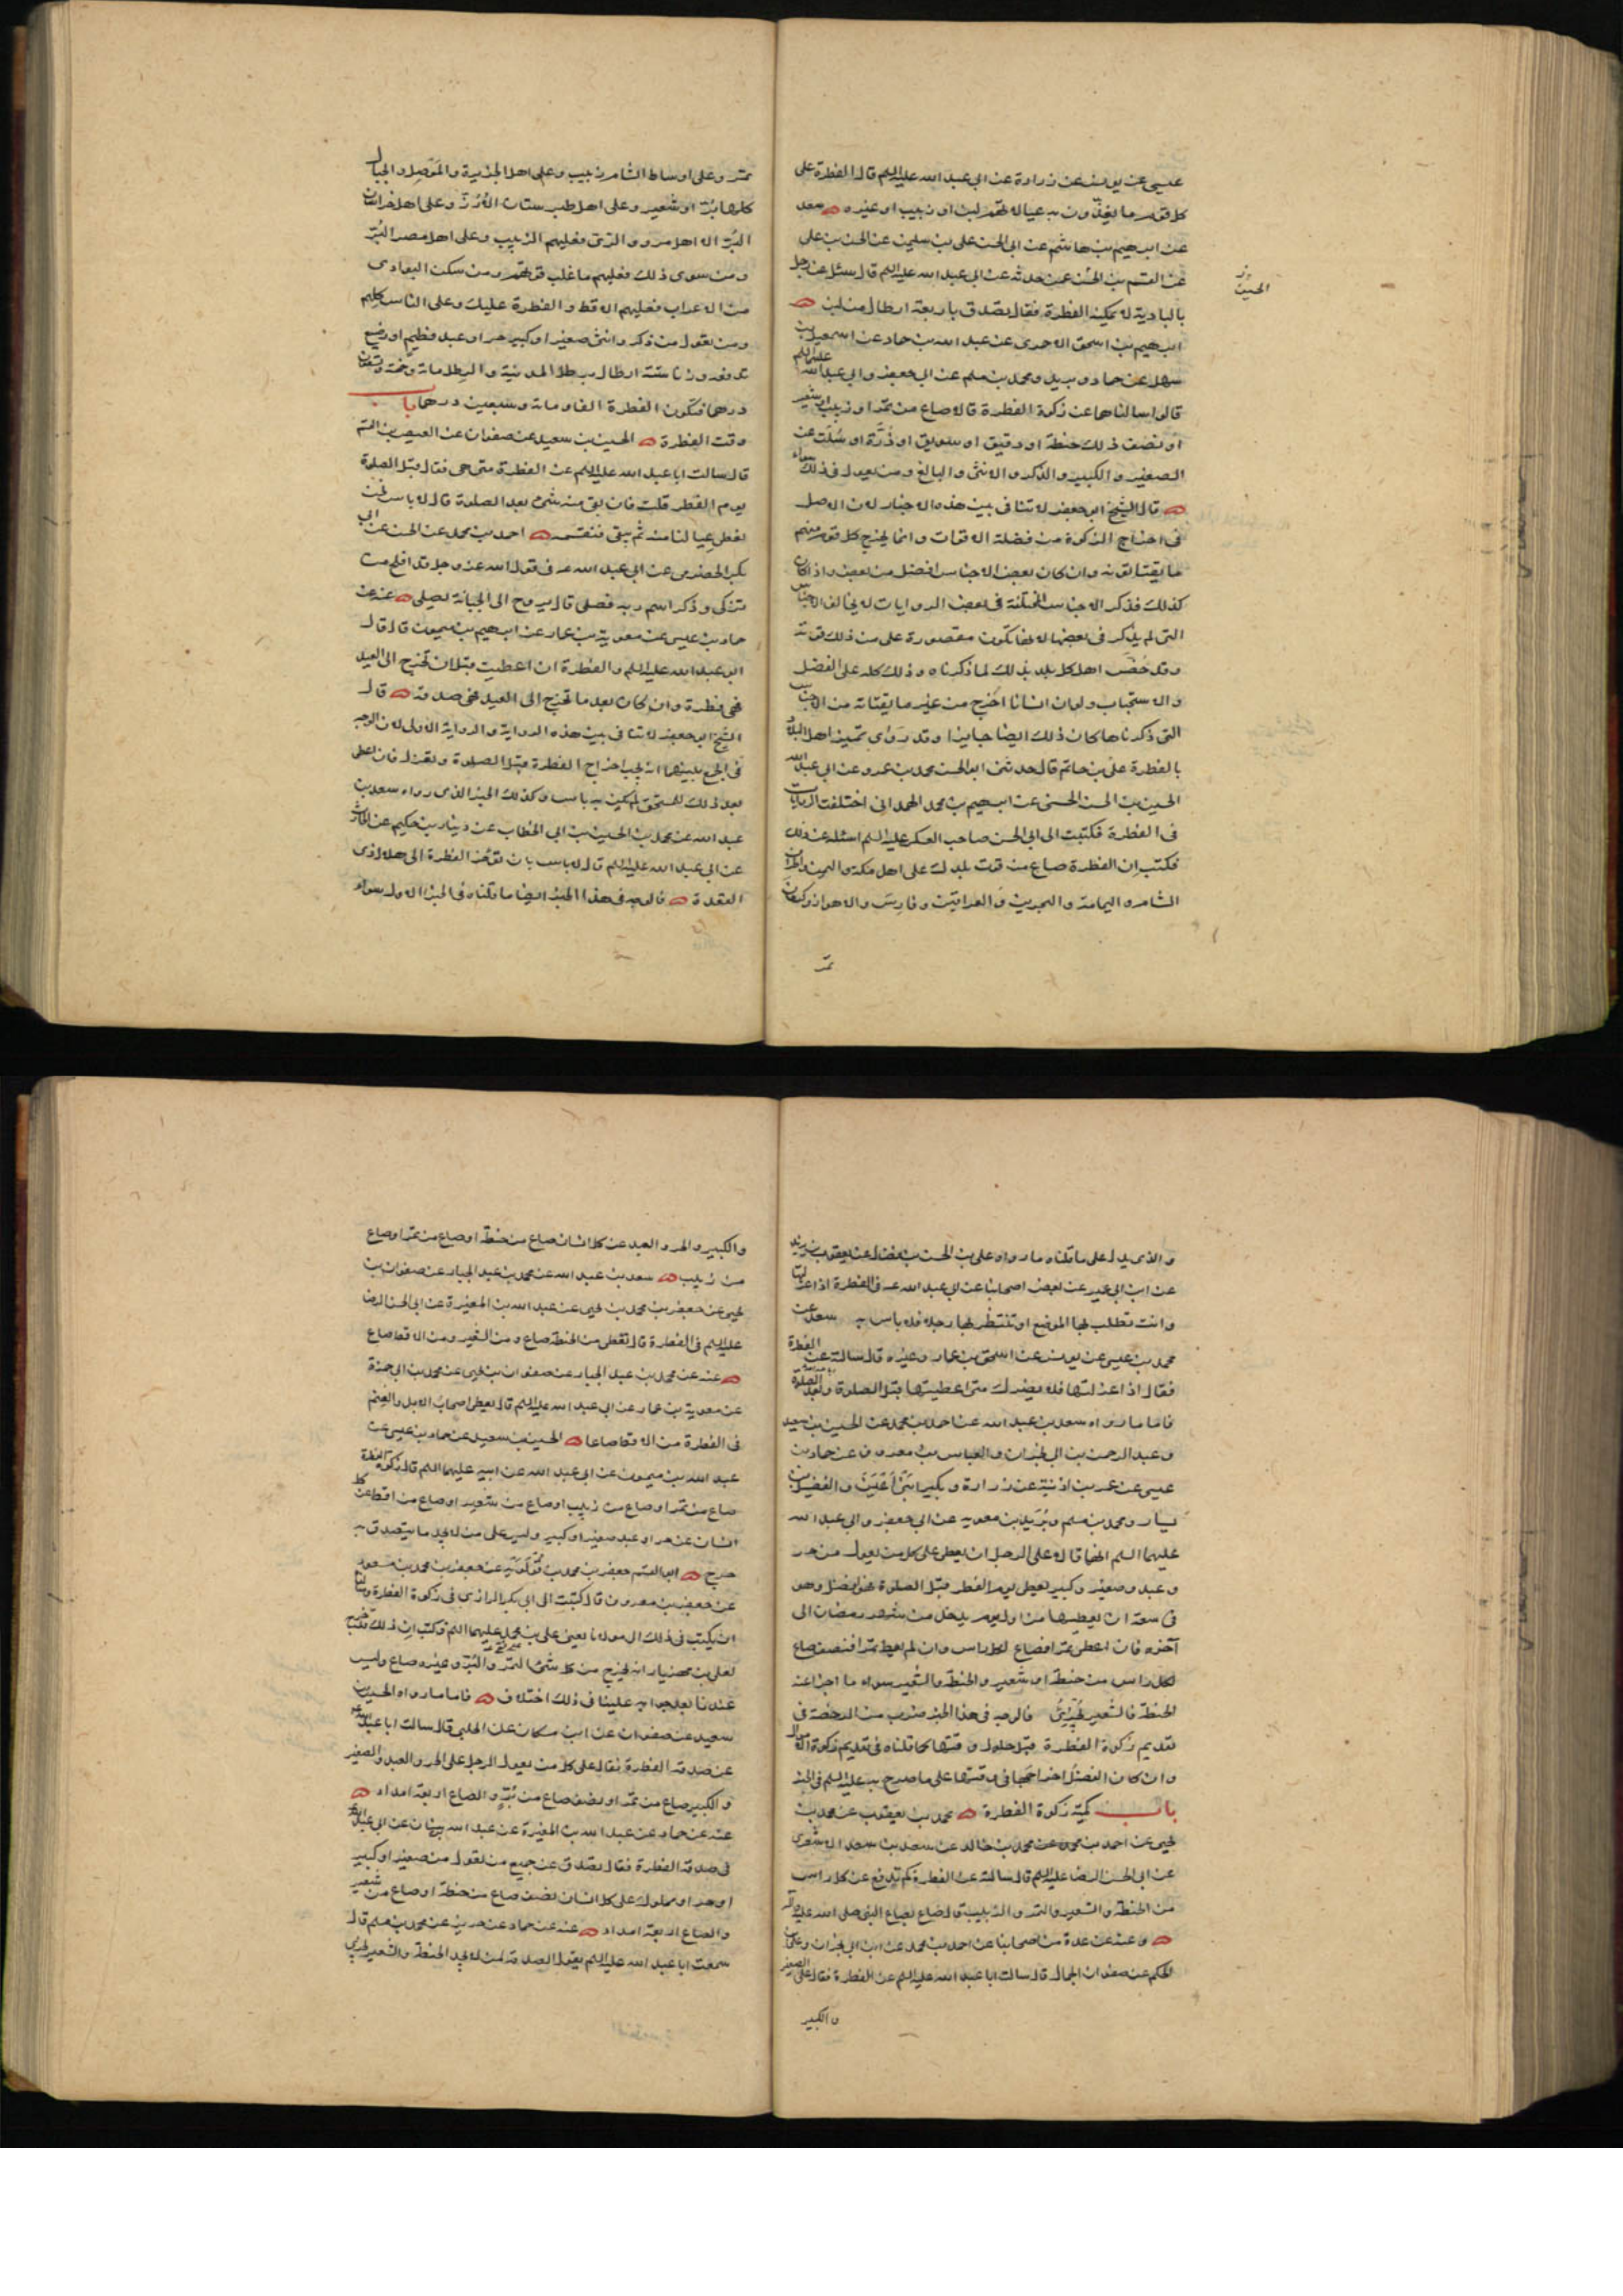 عيسى عن يونس عن زرارة عن ابي عبد الله عليه السلم قال الفطرة على
كل قوم ما يغذون به عيالاتهم لبن او زبيب او غيره سعد
عن ابرهيم بن هاشم عن ابي الحسن علي بن سليمن عن الحسن بن علي
عن القسم بن الحسن عمن حدثه عن ابي عبد الله عليه السلم قال سئل عن رجل
الحسين
بالبادية لا يمكنه الفطرة فقال يصدق باربعة ارطال من لبن
ابرهيم بن اسحق الاحمري عن عبد الله بن حماد عن اسمعيل بن
سهل عن حماد وبريد ومحمد بن مسلم عن ابي جعفر وابي عبد الله عليهما السلم
قالوا سالناهما عن زكوة الفطرة قالا صاع من تمر او زبيب او شعير
او نصف ذلك حنطة او دقيق او سويق او ذرة او سلت عن
الصغير والكبير والذكر والانثى والبالغ ومن يعول في ذلك سواء
قال الشيخ ابو جعفر لا تنافى بين هذه الاخبار لان الاصل
في اخراج الزكوة من فضلة الاقوات وانما يخرج كل قوم منهم
ما يقتاتونه وان كان بعض الاجناس افضل من بعض واذا كان
كذلك فذكر الاجناس المختلفة في بعض الروايات لا يخالف الاجناس
التي لم يذكر في بعضها لانها تكون مقصورة على من ذلك قوته
وقد خصّ اهل كل بلد بذلك لما ذكرناه وذلك كله على الفضل
والاستحباب ولو ان انسانا اخرج من غير ما يقتاته من الاجناس
التي ذكرناها كان ذلك ايضا جايزا وقد روى تمييز اهل البلاد
بالفطرة علي بن حاتم قال حدثني ابو الحسن محمد بن عمرو عن ابي عبد الله
الحسين بن الحسن الحسني عن ابرهيم بن محمد الهمداني اختلفت الروايات
في الفطرة فكتبت الى ابي الحسن صاحب العسكر عليه السلم اسئله عن ذلك
فكتب ان الفطرة صاع من قوت بلدك على اهل مكة واليمن واطراف
الشام واليمامة والبحرين والعراقين وفارس والاهواز وكرمان
تمر
تمر وعلى اوساط الشام زبيب وعلى اهل الجزيرة والموصل والجبال
كلها بُرّ او شعير وعلى اهل طبرستان الاُرُزّ وعلى اهل خراسان
البُرّ الا اهل مرو والري فعليهم الزبيب وعلى اهل مصر البُرّ
ومن سوى ذلك فعليهم ما غلب قوتهم ومن سكن البوادى
من الاعراب فعليهم الاقط والفطرة عليك وعلى الناس كلهم
ومن تعول من ذكر وانثى صغير او كبير حر او عبد فطيم او رضيع
تدفعه وزنا ستة ارطال برطل المدينة والرطل ماية وخمسة وتسعون
درهما فتكون الفطرة الفا وماية وسبعين درهما باب
وقت الفطرة الحسين بن سعيد عن صفوان عن العيص بن القسم
قال سالت ابا عبد الله عليه السلم عن الفطرة متى هي فقال قبل الصلوة
يوم الفطر قلت فان بقى منه شئ بعد الصلوة قال لا باس نحن
نعطى عيالنا منه ثم يبقى فنقسمه احمد بن محمد عن الحسن عن ابي
بكر الحضرمي عن ابي عبد الله عه في قول الله عز وجل قد افلح من
تزكى وذكر اسم ربه فصلى قال يروح الى الجبانة يصلى عنه عن
حماد بن عيسى عن معوية بن عمار عن ابرهيم بن ميمون قال قال
ابو عبد الله عليه السلم والفطرة ان اعطيت قبل ان تخرج الى العيد
فهى فطرة وان كان بعد ما تخرج الى العيد فهى صدقة قال
الشيخ ابو جعفر لا تنافى بين هذه الرواية والرواية الاولى لان الوجه
في الجمع بينهما ان يجب اخراج الفطرة قبل الصلوة وتعزل فان اعطى
بعد ذلك المستحق لم يكن به باس وكذلك الخبر الذى رواه سعد بن
عبد الله عن محمد بن الحسين بن ابي الخطاب عن دينار بن حكيم عن الحارث
عن ابي عبد الله عليه السلم قال لا باس بان تؤخر الفطرة الى هلال ذى
القعدة فالوجه في هذا الخبر ايضا ما قلناه في الخبر الاول سواء
والذى يدل على ما قلناه ما رواه علي بن الحسن بن فضال عن يعقوب بن يزيد
عن ابن ابي عمير عن بعض اصحابنا عن ابي عبد الله عه في الفطرة اذا عزلتها
وانت تطلب لها الموضع او تنتظر لها رجلا فلا باس به سعد عن
محمد بن عيسى عن يونس عن اسحق بن عمار وغيره قال سالته عن الفطرة
فقال اذا عزلتها فلا يضرك متى اعطيتها قبل الصلوة وبعد الصلوة
فاما ما رواه سعد بن عبد الله عن احمد بن محمد عن الحسين بن سعيد
وعبد الرحمن بن ابي نجران والعباس بن معروف عن حماد بن
عيسى عن عمر بن اذينة عن زرارة وبكير ابني اعين والفضيل بن
يسار ومحمد بن مسلم وبُريد بن معويه عن ابي جعفر وابي عبد الله
عليهما السلم انهما قالا على الرجل ان يعطى على كل من يعول من حر
وعبد وصغير وكبير يعطى يوم الفطر قبل الصلوة فهو افضل وهو
في سعة ان يعطيها من اول يوم يدخل من شهر رمضان الى
آخره فان اعطى تمرا فصاع لكل راس وان لم يعط تمرا فنصف صاع
لكل راس من حنطة او شعير والحنطة والشعير سواء ما اجزا عنه
الحنطة فالشعير يجزئ فالوجه في هذا الخبر ضرب من الرخصة في
تقديم زكوة الفطرة قبل حلول وقتها كما قلناه في تقديم زكوة الاموال
وان كان الفضل اخراجها في وقتها على ما صرح به عليه السلم في الخبر
باب كمية زكوة الفطرة محمد بن يعقوب عن محمد بن
يحيى عن احمد بن محمد عن محمد بن خالد عن سعد بن سعد الاشعرى
عن ابي الحسن الرضا عليه السلم قال سالته عن الفطرة كم تدفع عن كل راس
من الحنطة والشعير والتمر والزبيب قال صاع بصاع النبى صلى الله عليه وآله
وعنه عن عدة من اصحابنا عن احمد بن محمد عن ابن ابي نجران وعلي بن
الحكم عن صفوان الجمال قال سالت ابا عبد الله عليه السلم عن الفطرة فقال على الصغير
والكبير
والكبير والحر والعبد عن كل انسان صاع من حنطة او صاع من تمر او صاع
من زبيب سعد بن عبد الله عن محمد بن عبد الجبار عن صفوان بن
يحيى عن جعفر بن محمد بن يحيى عن عبد الله بن المغيرة عن ابي الحسن الرضا
عليه السلم في الفطرة قال تعطى من الحنطة صاع ومن الشعير ومن الاقط صاع
عنه عن محمد بن عبد الجبار عن صفوان بن يحيى عن محمد بن ابي حمزة
عن معوية بن عمار عن ابي عبد الله عليه السلم قال يعطى اصحاب الابل والغنم
في الفطرة من الاقط صاعا الحسين بن سعيد عن حماد بن عيسى عن
عبد الله بن ميمون عن ابي عبد الله عن ابيه عليهما السلم قال زكوة الفطرة
صاع من تمر او صاع من زبيب او صاع من شعير او صاع من اقط عن كل
انسان عن حر او عبد صغير او كبير وليس على من لا يجد ما يتصدق به
حرج ابو القسم جعفر بن محمد بن قولويه عن جعفر بن محمد بن مسعود
عن جعفر بن معروف قال كتبت الى ابي بكر الرازى في زكوة الفطرة وسالناه
ان يكتب في ذلك الى مولانا يعنى علي بن محمد عليهما السلم فكتب ان ذلك قد خرج
لعلي بن مهزيار انه يخرج من كل شئ التمر والبُرّ وغيره صاع وليس
عندنا بعد جوابه علينا في ذلك اختلاف فاما ما رواه الحسين بن
سعيد عن صفوان عن ابن مسكان عن الحلبي قال سالت ابا عبد الله عه
عن صدقة الفطرة فقال على كل من يعول الرجل على الحر والعبد والصغير
والكبير صاع من تمر او نصف صاع من بُرّ والصاع اربعة امداد
عنه عن حماد عن عبد الله بن المغيرة عن عبد الله بن سنان عن ابي عبد الله عه
في صدقة الفطرة فقال تصدق عن جميع من تعول من صغير او كبير
او حر او مملوك على كل انسان نصف صاع من حنطة او صاع من شعير
والصاع اربعة امداد عنه عن حماد عن حريز عن محمد بن مسلم قال
سمعت ابا عبد الله عليه السلم يقول الصدقة لمن لا يجد الحنطة والشعير يجزى